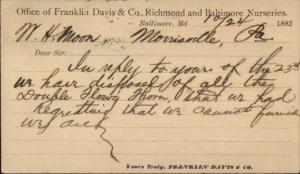 Office of Franklin Davis & Co., Richmond and Baltimore Nurseries.
Baltimore, Md 10/24 1882
W. H. Moon Morrisville, Pa
Dear Sir:
In reply to yours of the 23rd
we have disposed of all the
Double Flowg Thorn that we had
Regretting that we cannot furnish
we are
Yours Truly, FRANKLIN DAVIS & CO.